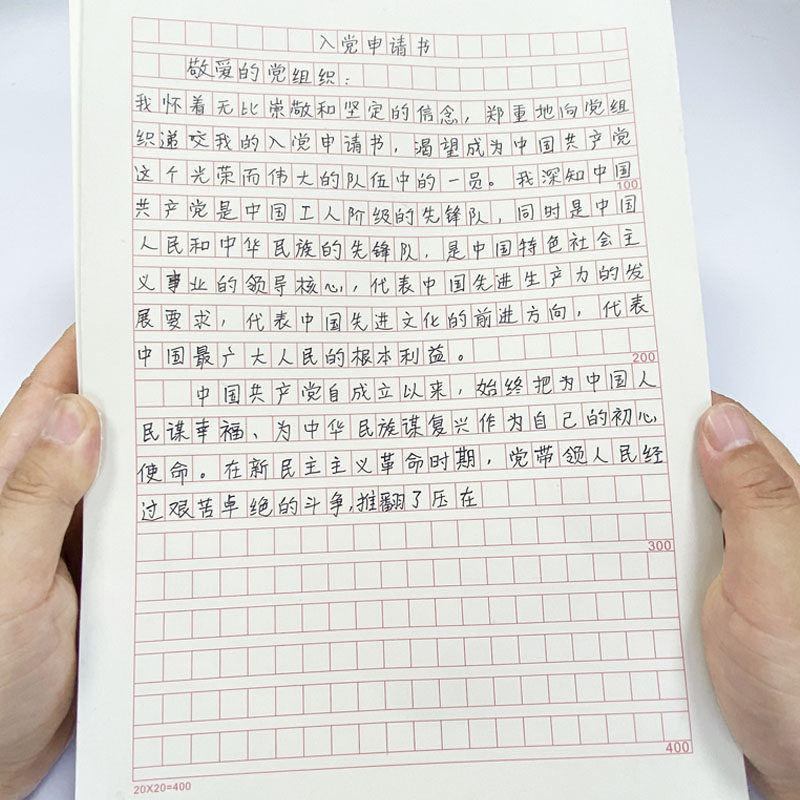 入党申请书
敬爱的党组织：
我怀着无比崇敬和坚定的信念，郑重地向党组
织递交我的入党申请书，渴望成为中国共产党
这个光荣而伟大的队伍中的一员。我深知中国
100
共产党是中国工人阶级的先锋队，同时是中国
人民和中华民族的先锋队，是中国特色社会主
义事业的领导核心，代表中国先进生产力的发
展要求，代表中国先进文化的前进方向，代表
中国最广大人民的根本利益。
200
中国共产党自成立以来，始终把为中国人
民谋幸福、为中华民族谋复兴作为自己的初心
使命。在新民主主义革命时期，党带领人民经
过艰苦卓绝的斗争,推翻了压在
300
400
20X20=400